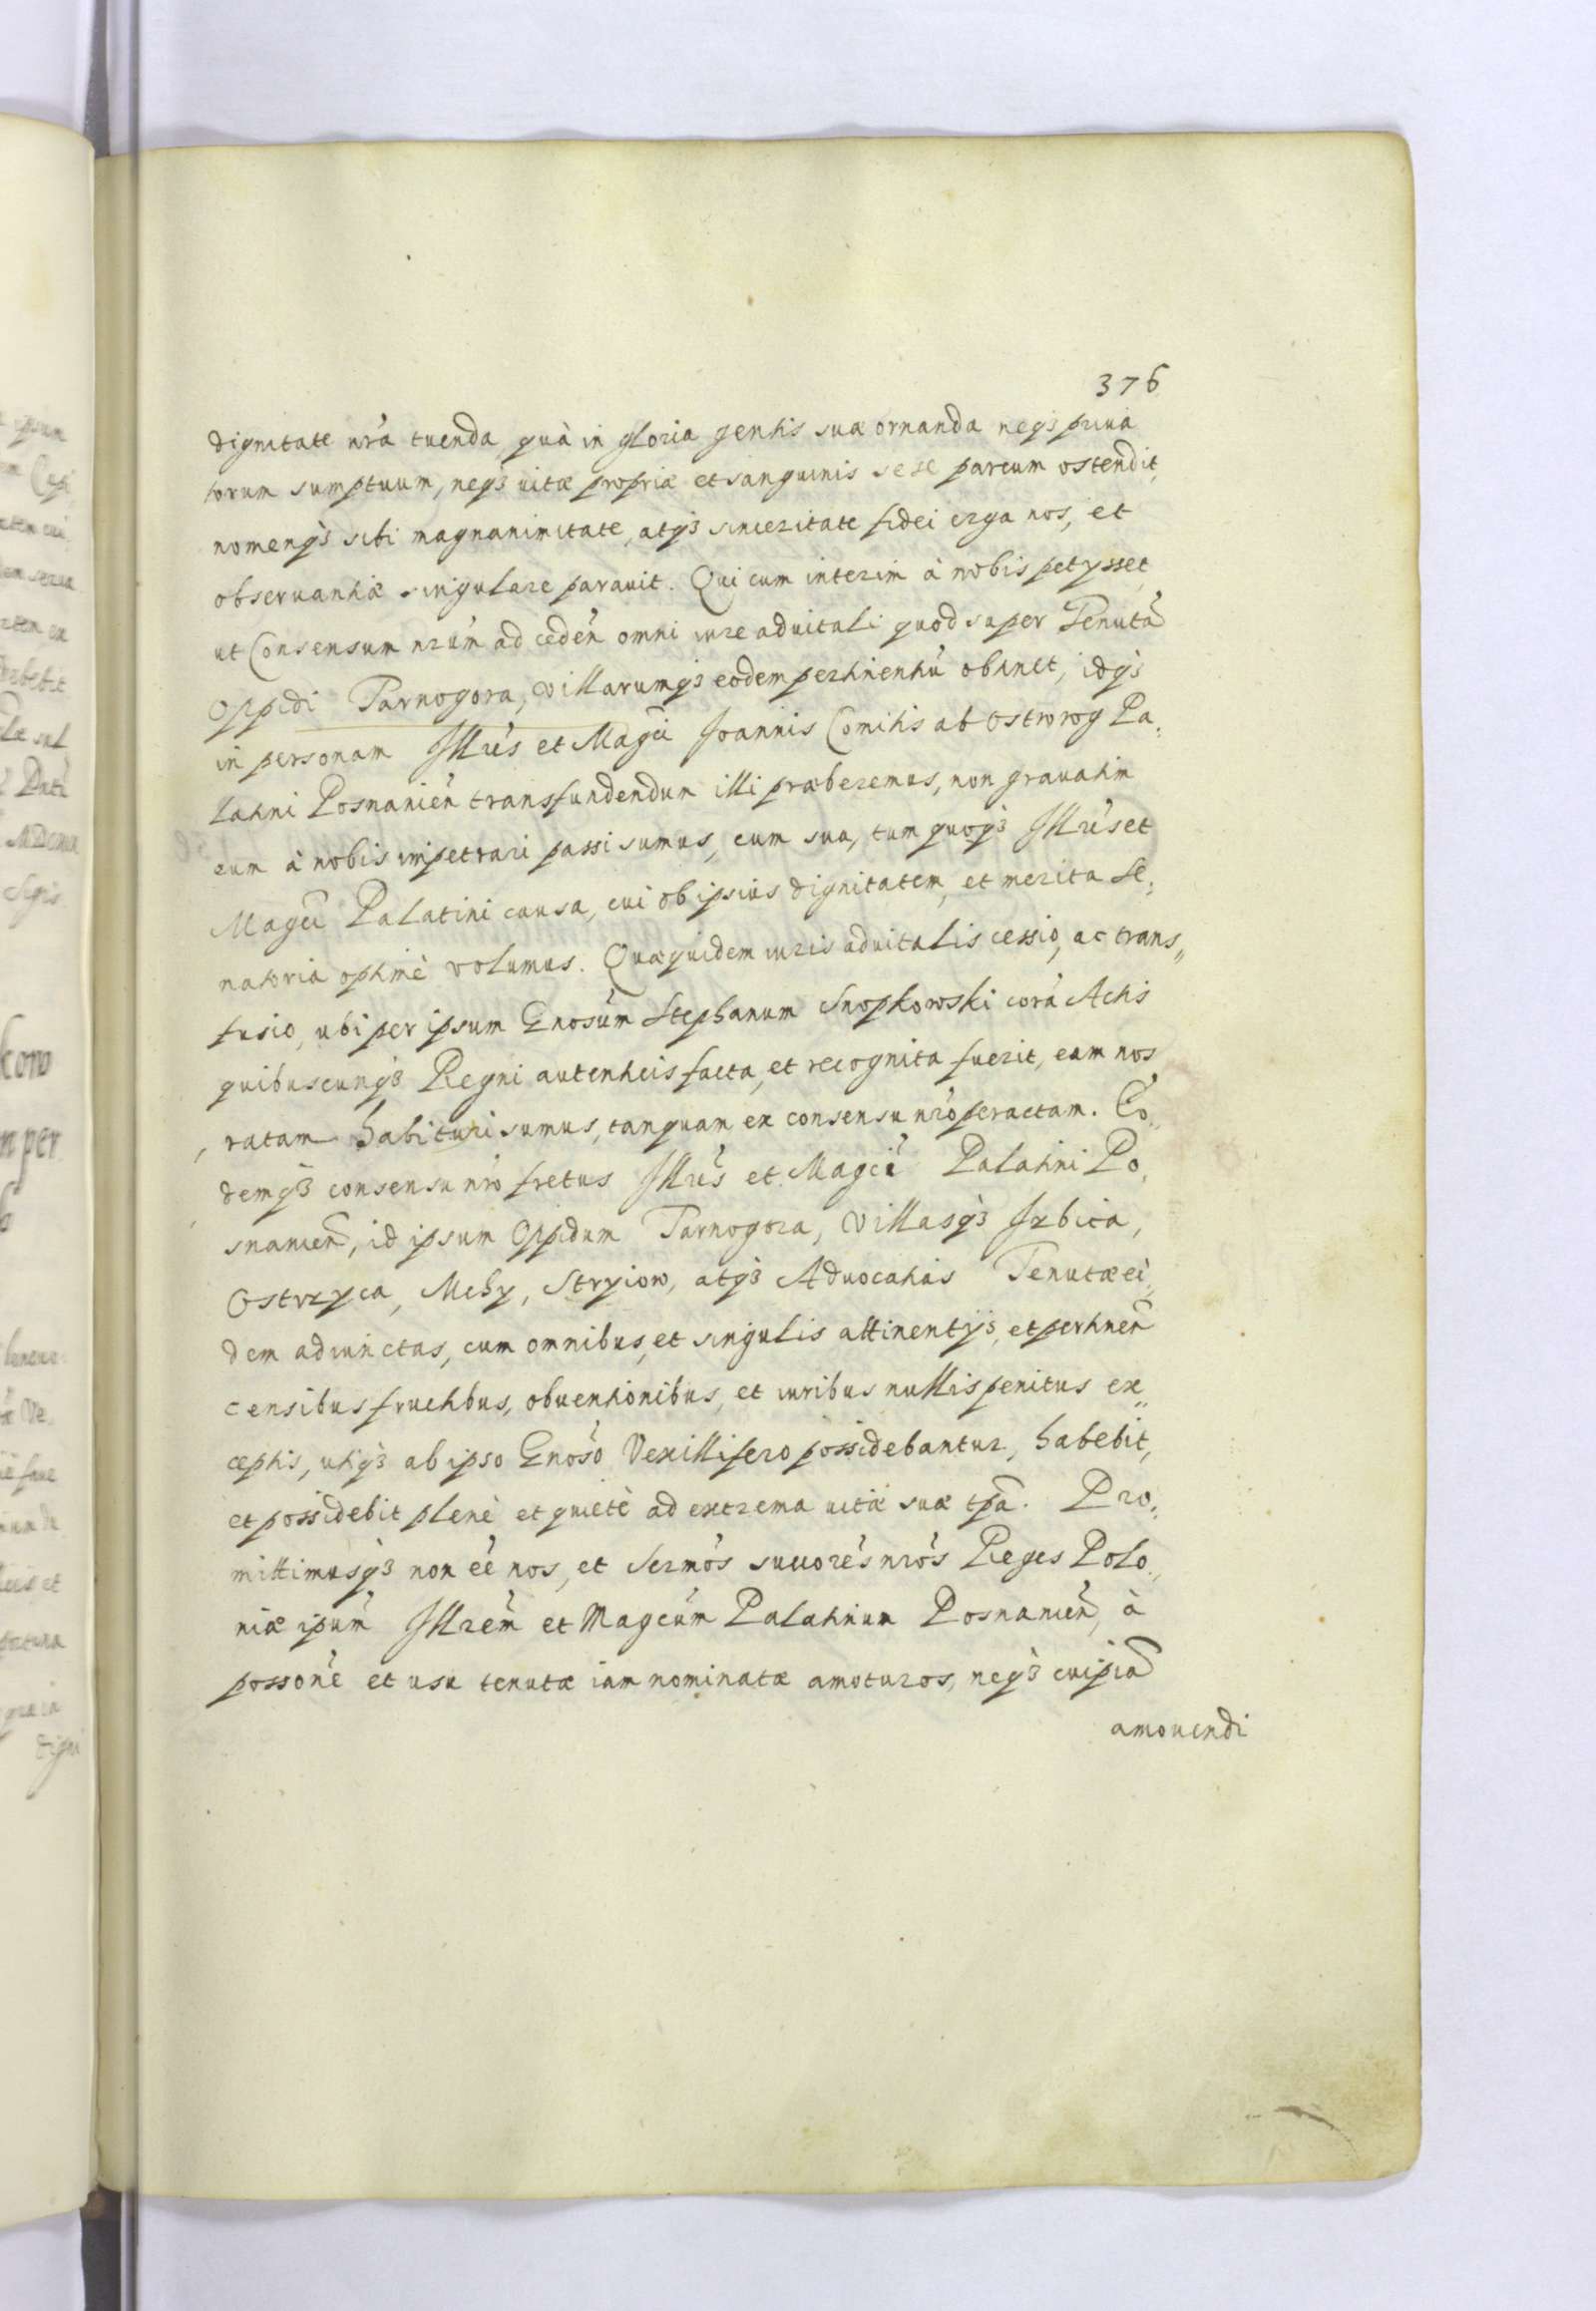 376
dignitate nr̃a tuenda, quà in gloria gentis suæ ornanda neqȝ priua
torum sumptuum, neqȝ uitæ propriæ et sanguinis sese parcum ostendit,
nomenqȝ sibi magnanimitate, atqȝ sinceritate fidei erga nos, et
obseruantiæ singulare parauit. Qui cum interim à nobis petysset
ut Consensum nrũm ad cedeñ omni iure aduitali quod super Tenutã
Oppidi Tarnogora, villarumqȝ eodem pertinentiũ obtinet, idqȝ
in personam Illrĩs et Magci Joannis Comitis ab Ostrorog Pa,
latini Posnanień transfundendum illi præberemus, non grauatim
eum à nobis impetrari passi sumus, cum sua, tum quoqȝ Illrĩs et
Magci Palatini causa, cui ob ipsius dignitatem, et merita Se,
natoria optimè volumus. Quæquidem iuris aduitalis cessio, ac trans„
fusio, ubi per ipsum Gnosũm Stephanum Snopkowski corã Actis
quibuscunqȝ Regni autenticis facta, et recognita fuerit, eam nos
ratam habituri sumus, tanquam ex consensu nrõ peractam. Eo„
demqȝ consensu nrõ fretus Illrĩs et Magcũ Palatini Po,
snanień, id ipsum Oppidum Tarnogora, Villasqȝ Jzbica,
Ostrzyca, Mchy, Stryiow, atqȝ Aduocatias Tenutæ ei,
dem adiunctas, cum omnibus, et singulis attinentijs, et pertineñ
censibus fructibus, obuentionibus, et iuribus nullis penitus ex„
ceptis, utiqȝ ab ipso Gnosõ Vexillifero possidebantur, habebit,
et possidebit plenè et quietè ad extrema uitæ suæ tpã. Pro,
mittimusqȝ non eẽ nos, et Sermõs succorẽs nrõs Reges Polo,
niæ ipũm Illrẽm et Magcũm Palatinum Posnanień, à
possonẽ et usu tenutæ iam nominatæ amoturos, neqȝ cuipiã
amouendi